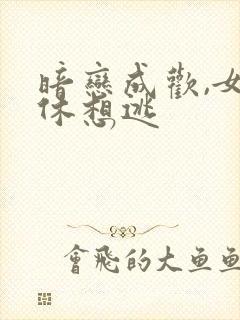 暗戀成歡,女
休想逃
會飛的大魚魚